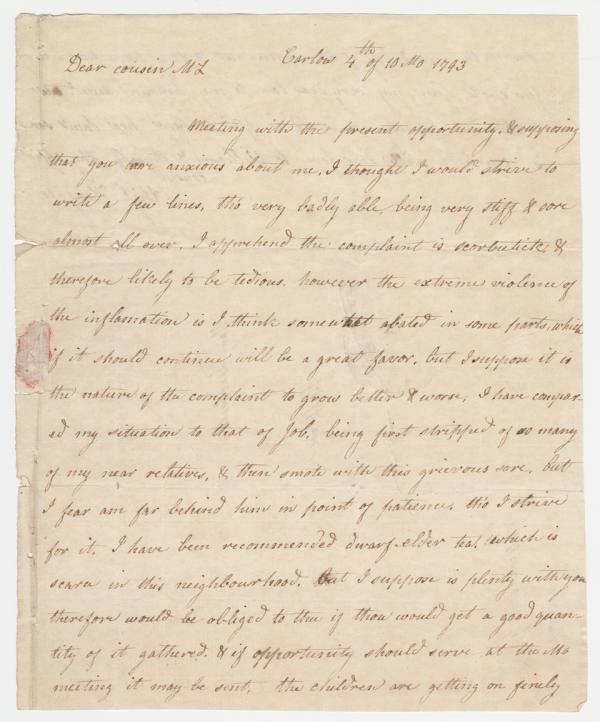 Carlow 4th of 10 Mo 1793
Dear cousin ML
Meeting with the present opportunity, & supposing
that you are anxious about me, I thought I would strive to
write a few lines, tho very badly able, being very stiff & sore
almost all over, I apprehend the complaint is scorbutick, &
therefore likely to be tedious. however the extreme violence of
the inflamation is I think somewhat abated in some parts, which
if it should continue will be a great favor, but I suppose it is
the nature of the complaint to grow better & worse, I have compar-
ed my situation to that of Job, being first stripped of so many
of my near relatives, & then smote with this grievous sore, but
I fear am far behind him in point of patience, tho I strive
for it. I have been recommended dwarf elder tea, which is
scarce in this neighbourhood. but I suppose is plenty with you
therefore would be obliged to thee if thou would get a good quan-
tity of it gathered. & if opportunity should serve at the Mo
meeting it may be sent. the children are getting on finely